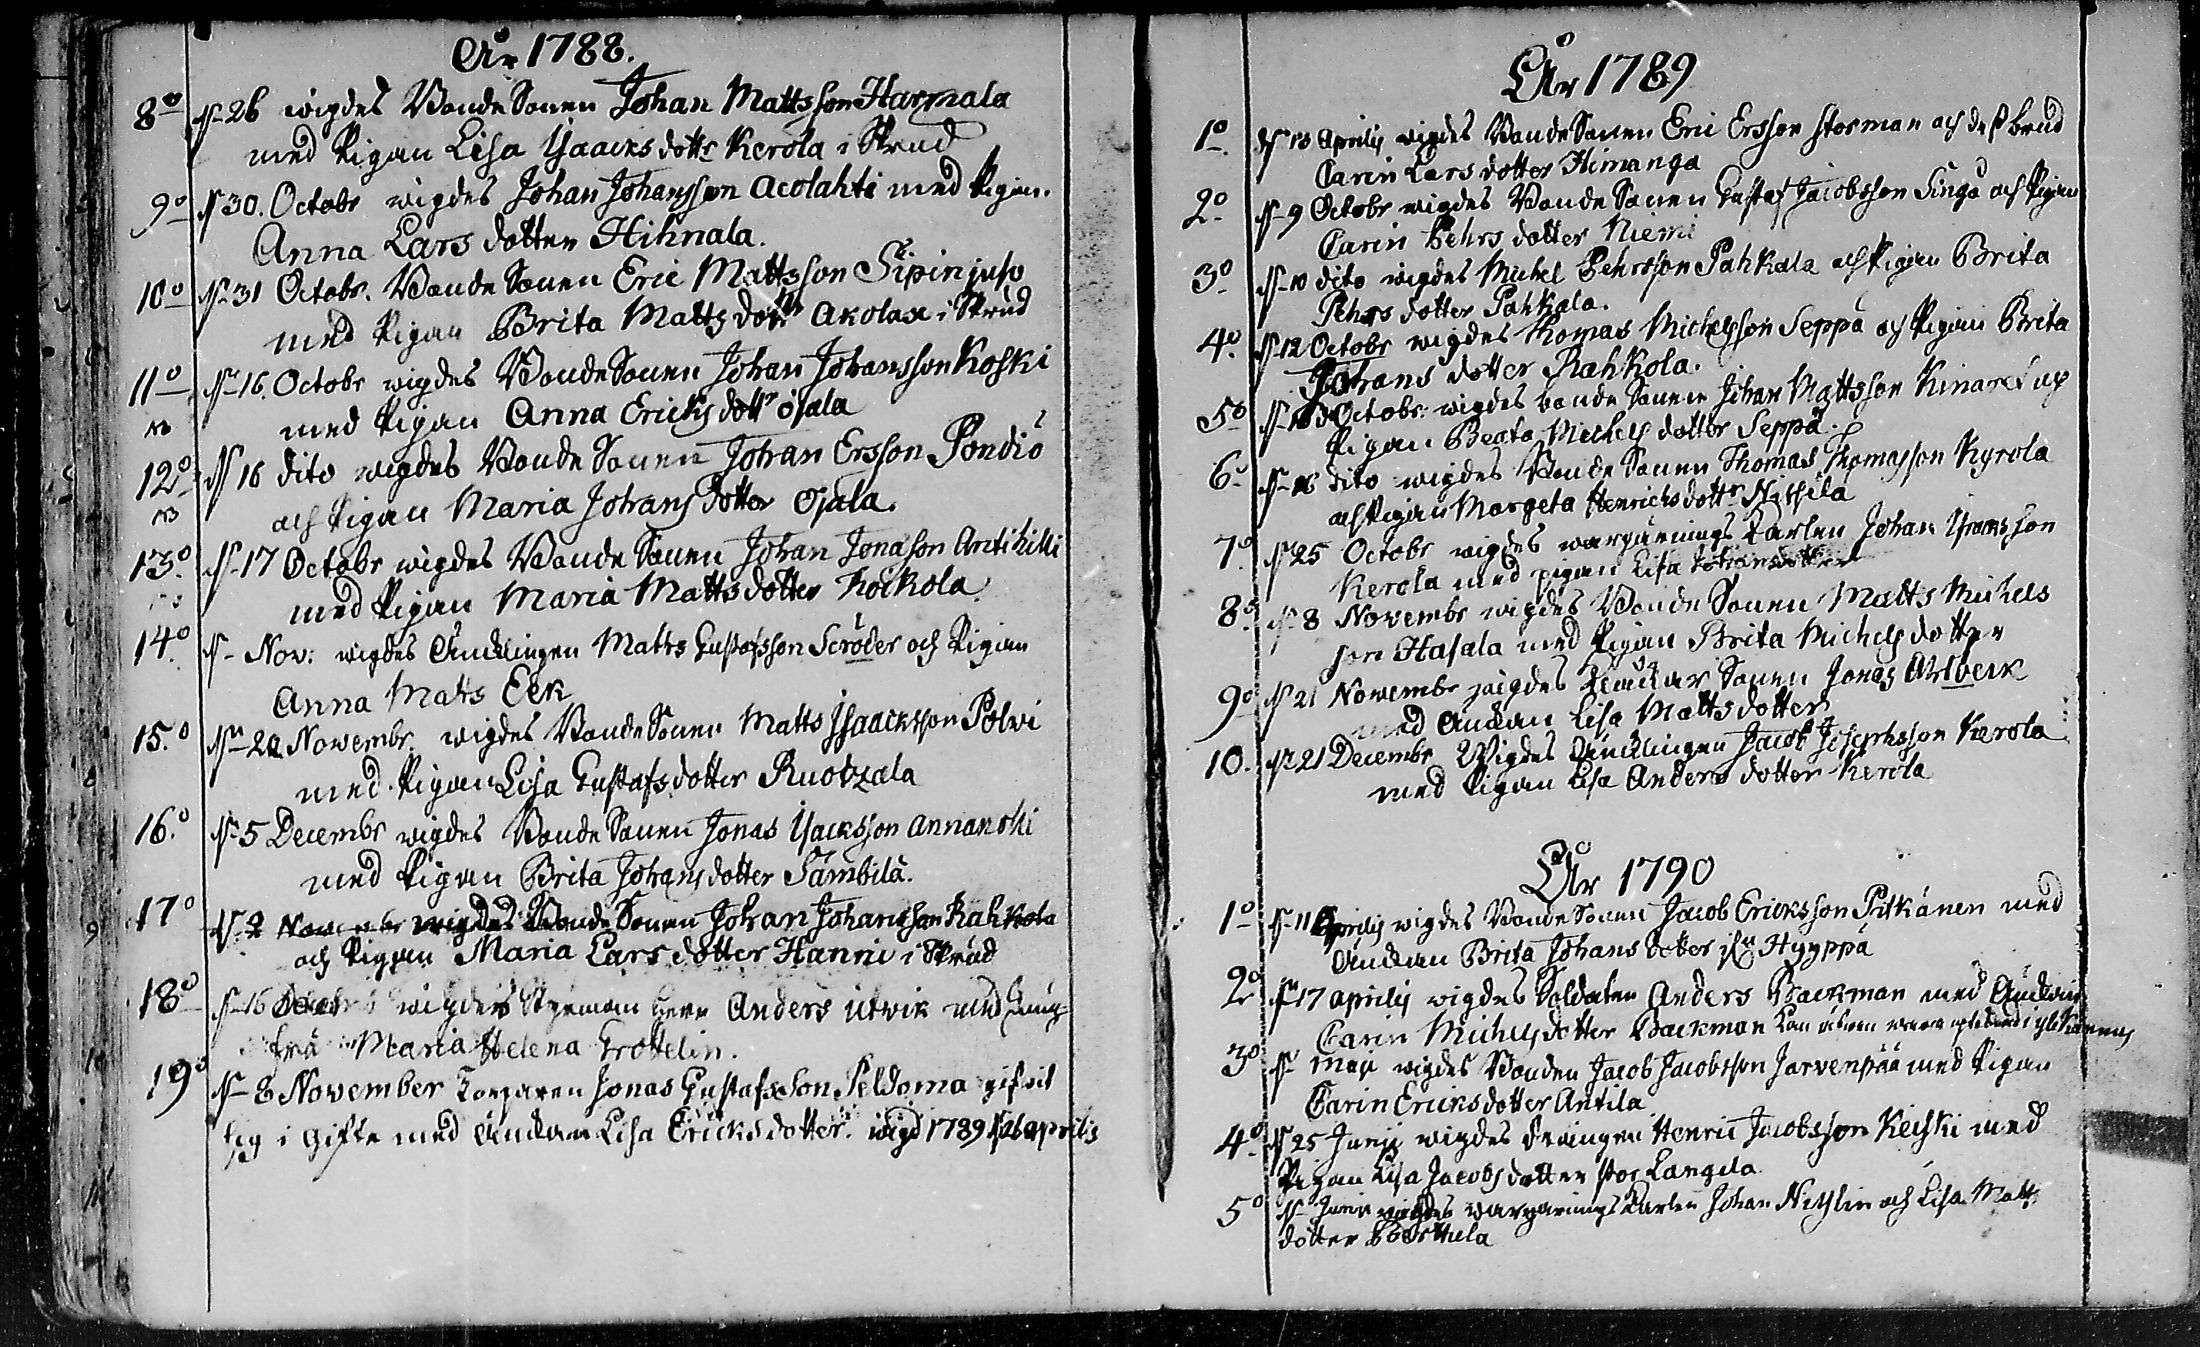 År 1788.
8o dn 26 wigdes BondeSonen Johan Mattsson Harmala
med Pigan Lisa Isaacks dottr Kerola i Skrud
9o dn 30. Octobr wigdes Johan Johansson Acolahti med Pigan.
Anna Lars dotter Hihnala.
10o dn 31 Octobr. BondeSonen Eric Mattsson Sipin juso
med Pigan Brita Matts dottr Akolax i Skrud
11o dn 16. Octobr wigdes BondeSonen Johan Johansson Koski
med Pigan Anna Ericks dottr Ojala
NB
12o dn 16 dito wigdes BondeSonen Johan Ersson Pondiö
och Pigan Maria Johans dotter Ojala.
NB
13o. dn 17 Octobr wigdes BondeSonen Johan Jonasson
med Pigan Maria Matts dotter Kockola
14o. dn Nov: wigdes Änklingen Matts Gustafsson Scröder och Pigan
Anna Matts Eek
15.o dn 20 Novembr. wigdes BondeSonen Matts Isaacksson Polvi
med Pigan Lisa Gustafs dotter Ruotzala
16.o dn 5 Decembr wigdes BondeSonen Jonas Isacksson Annanoski
med Pigan Brita Johans dotter Sämbilä.
17o dn 2 Novembr wigdes BondeSonen Johan Johansson Kahkola
och Pigan Maria Lars dotter Hanni i Skrud
18o dn 16 wigdes Styrman herr Anders Utvik med Jung-
fru Maria Helena Frottelin.
19o dn 8 November Torparen Jonas Gustafsson Peldoma gifvit
sig i Gifte med Änkan Lisa Ericks dotter. wigd 1789 dn 26 aprilis
År 1789
1o dn 13 Aprilis wigdes BondeSonen Eric Ersson Storman och dess brud
Carin Lars dotter Himanga
2o dn 9 Octobr wigdes BondeSonen Gustaf Jacobsson Singa och Pigan
Carin Pehrs dotter Niemi
3o dn 10 dito wigdes Michel Pehrsson Pahkala och Pigan Brita
Pehrs dotter Pahkala.
4o. dn 12 Octobr wigdes Thomas Michelsson Seppä och Pigan Brita
Johans dotter Rahkola.
5o dn Octobr: wigdes bondeSonen Johan Mattsson Kinaret och
Pigan Beata Michels dotter Seppä.
6o dn 16 dito wigdes BondeSonen Thomas Thomasson Kyrola
och Pigan Margeta Henrichs dottr
7o. dn 25 Octobr wigdes wargärnings Karlen Johan Isacksson
Kerola med pigan Lisa Johansdotter
8o. dn 8 Novembr wigdes BondeSonen Matts Michels
son Hasala med Pigan Brita Michels dotter
9o dn 21 Novembr wigdes Sonen Jonas
med Änkan Lisa Matts dotter
10. dn 21 Decembr Wigdes Änklingen Jacob Josephsson Kerola
med Pigan Lisa Anders dotter Kerola
År 1790
1o dn 11 Aprilis wigdes BondeSonen Jacob Ericksson Pitkänen med
Änkan Brita Johans dotter Hyyppä
2o dn 17 aprilis wigdes Soldaten Anders Backman med Änkan
Carin Michels dotter Backman
3o dn Maji wigdes Bonden Jacob Jacobsson Jarvenpää med Pigan
Carin Ericks dotter Antila
4o. dn 25 Junij wigdes Drängen Henric Jacobsson Keiski med
Pigan Lisa Jacobs dotter stor Langila
5o dn Junij wigdes wargärnings Karlen Johan och Lisa Matts
dotter